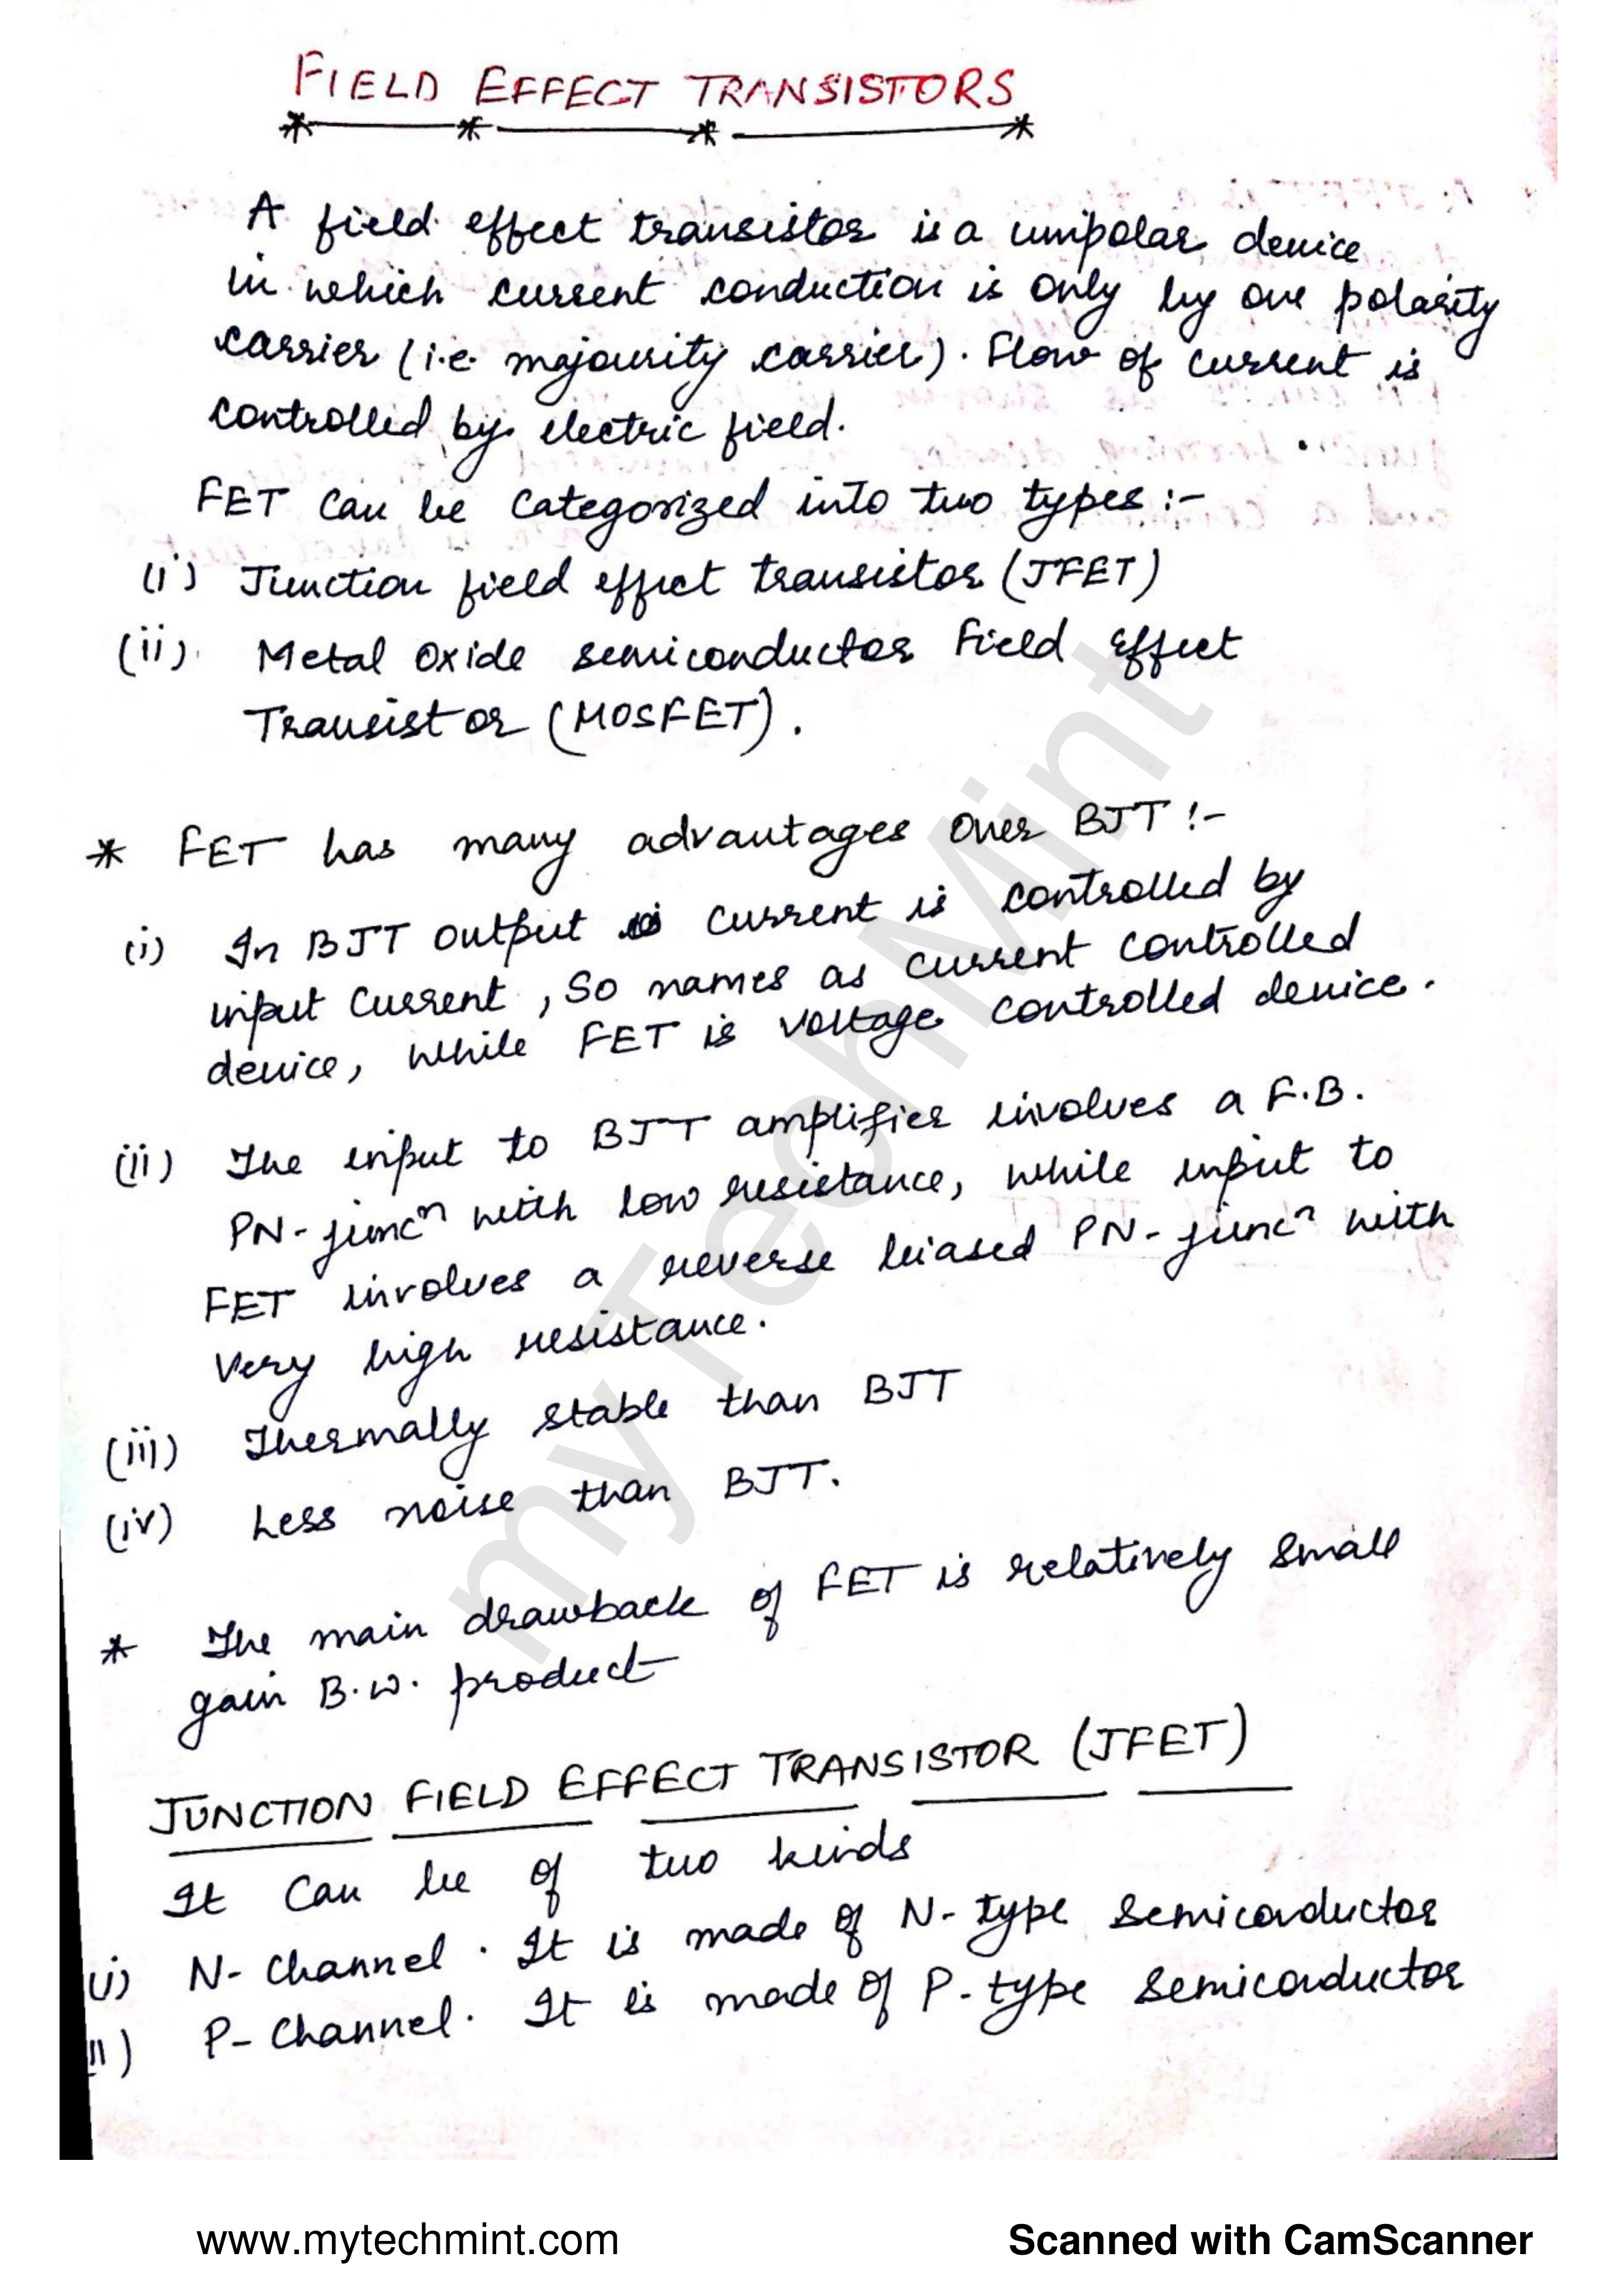 FIELD EFFECT TRANSISTORS
A field effect transistor is a unipolar device
in which current conduction is only by one polarity
carrier (i.e. majourity carrier). Flow of current is
controlled by electric field.
FET can be categorized into two types :-
(i) Junction field effect transistor (JFET)
(ii) Metal Oxide semiconductor Field Effect
Transistor (MOSFET).
* FET has many advantages over BJT :-
(i) In BJT output current is controlled by
input current, So names as current controlled
device, while FET is voltage controlled device.
(ii) The input to BJT amplifier involves a F.B.
PN-juncⁿ with low resistance, while input to
FET involves a reverse biased PN-juncⁿ with
very high resistance.
(iii) Thermally stable than BJT
(iv) Less noise than BJT.
* The main drawback of FET is relatively small
gain B.W. product
JUNCTION FIELD EFFECT TRANSISTOR (JFET)
It can be of two kinds
(i) N-Channel. It is made of N-type semiconductor
(ii) P-Channel. It is made of P-type semiconductor
myTechMint
www.mytechmint.com Scanned with CamScanner